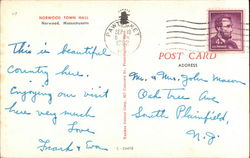 NORWOOD TOWN HALL
Norwood, Massachusetts
PAWTUCKET
SEP
POST CARD
ADDRESS
This is beautiful
country here.
Enjoying our visit
here very much
Love
Frank & Eva
Mr. & Mrs. John Mason
Oak Tree Ave
South Plainfield,
N.J.